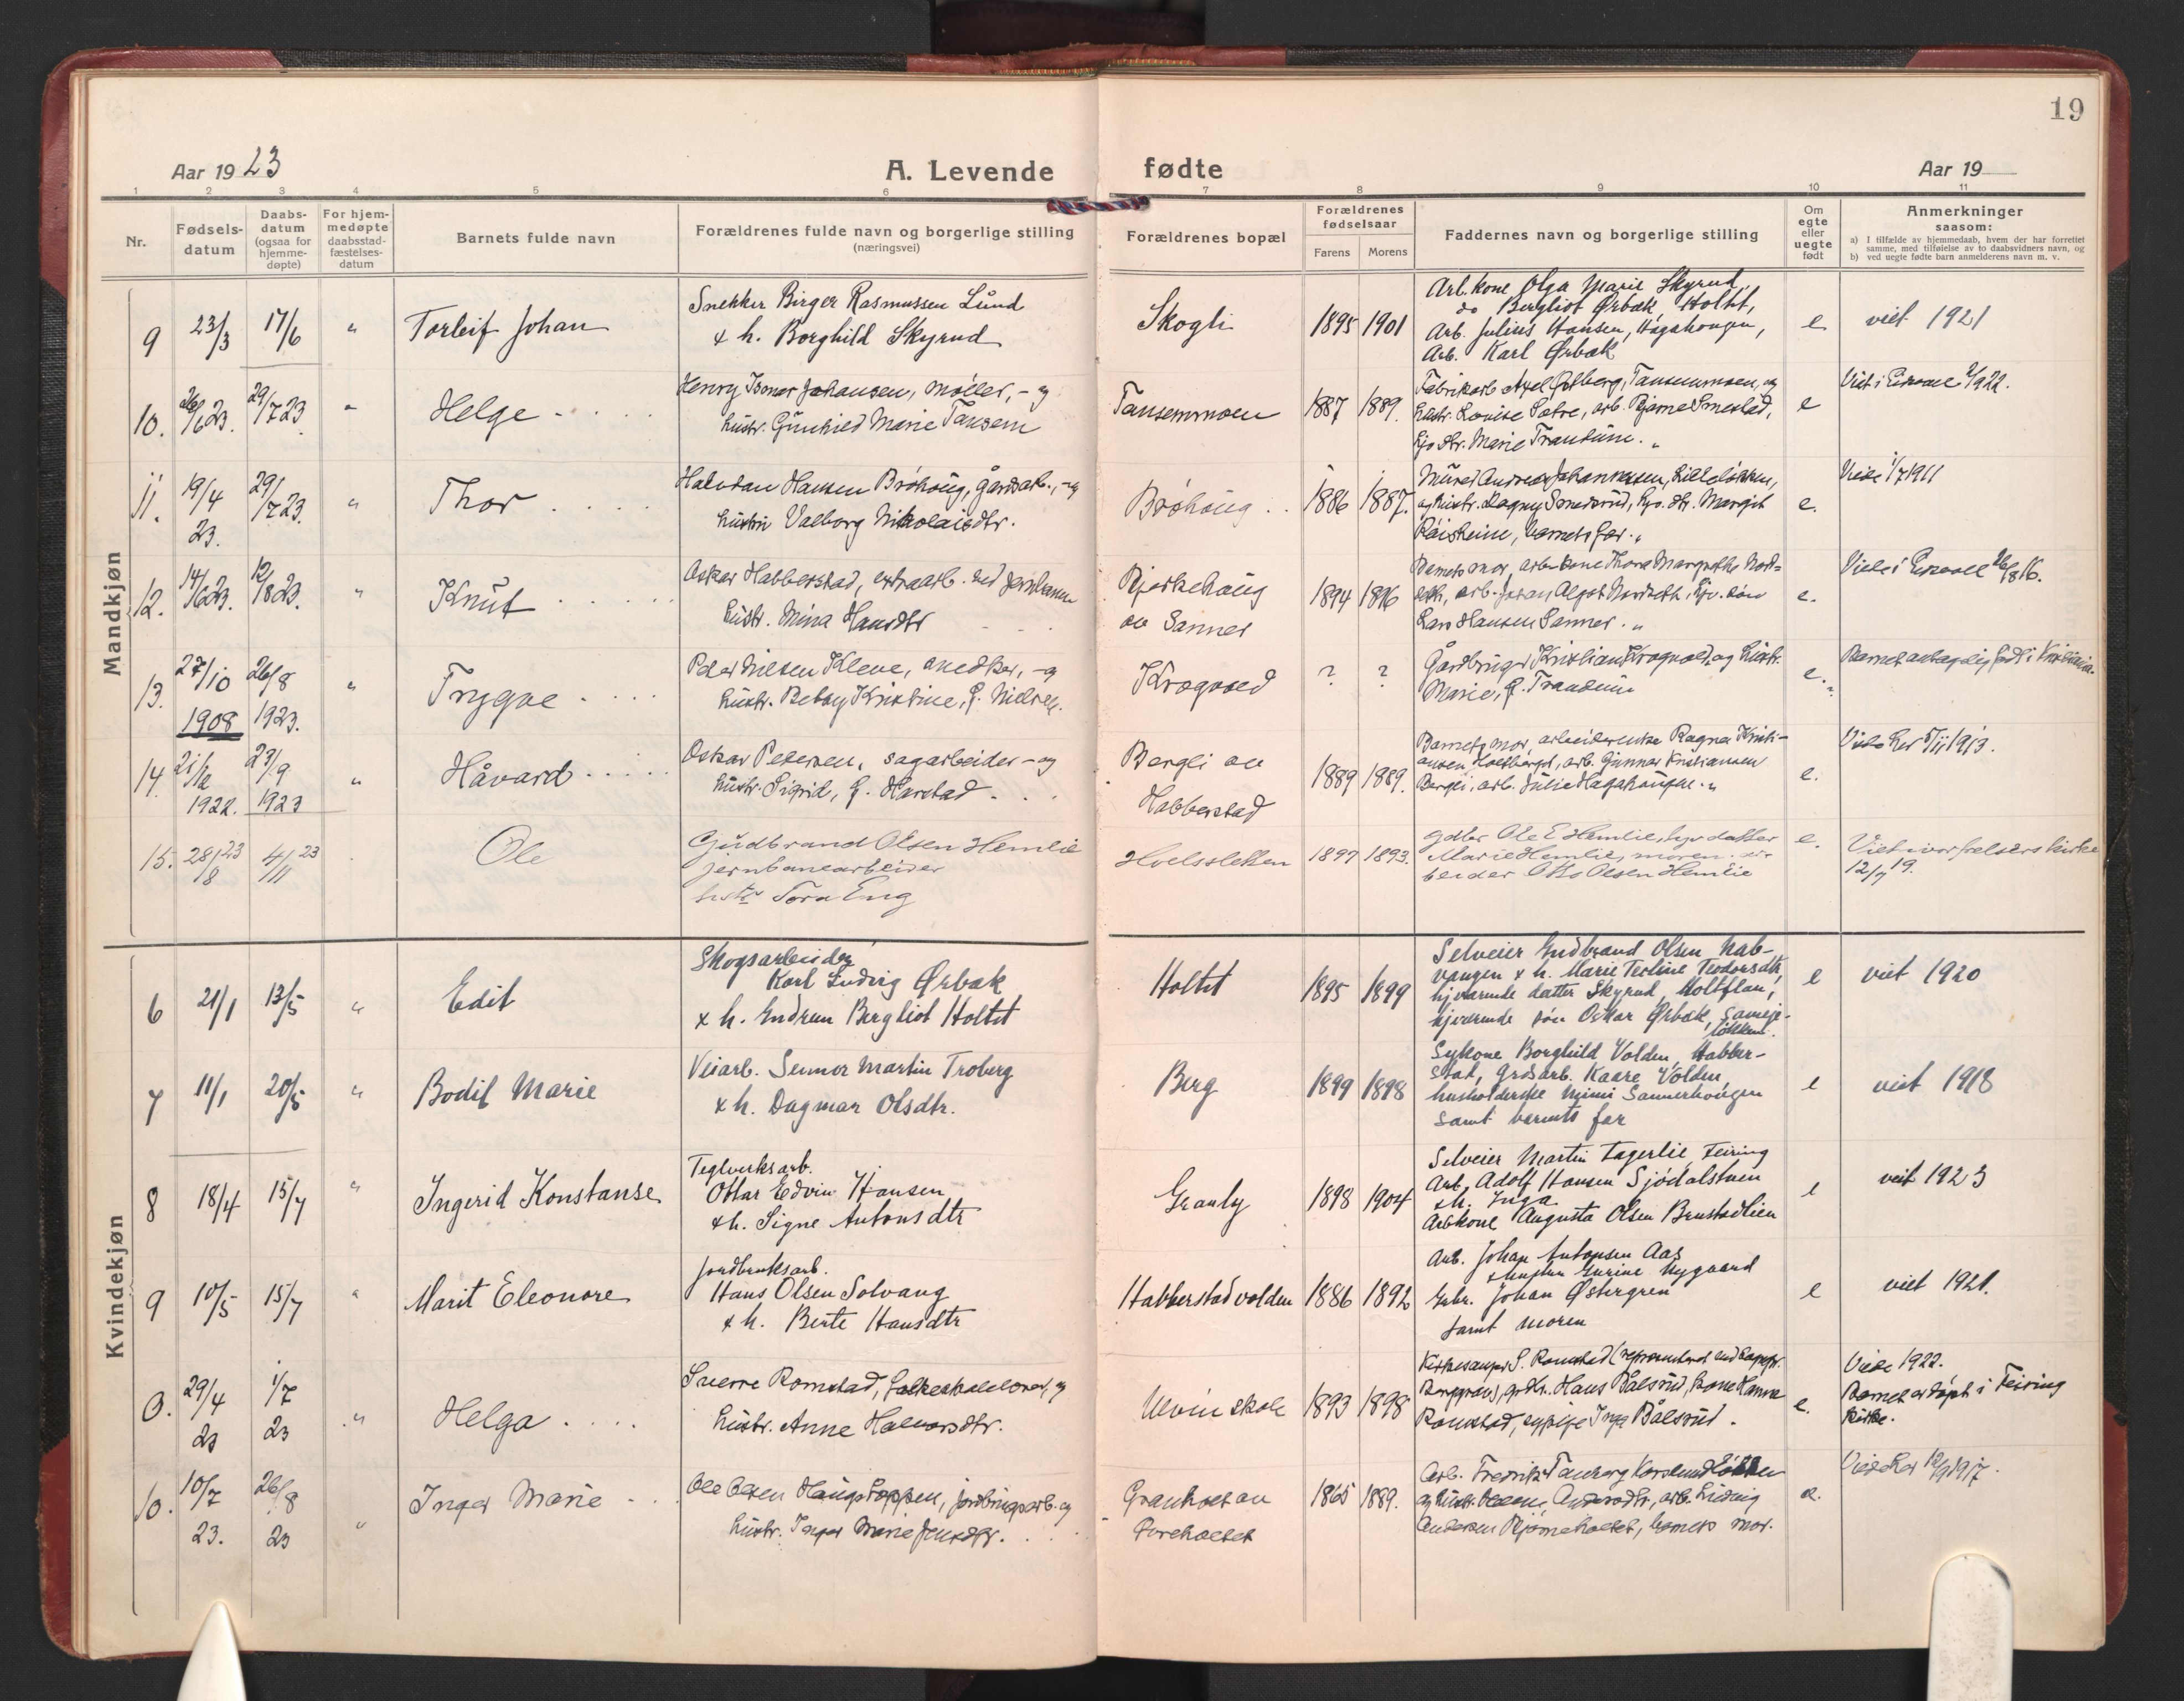 19
Aar 1923
A. Levende fødte
Aar 19
1 2 3 4 5 6 7 8 9 10 11
Nr.
Fødsels-datum
Daabs-datum (ogsaa for hjemme-døpte)
For hjem-medøpte daabsstad-fæstelses-datum
Barnets fulde navn
Forældrenes fulde navn og borgerlige stilling (næringsvei)
Forældrenes bopæl
Forældrenes fødselsaar
Farens Morens
Faddernes navn og borgerlige stilling
Om egte eller uegte født
Anmerkninger saasom:
a) I tilfælde av hjemmedaab, hvem der har forrettet samme, med tilføielse av to daabsvidners navn, og
b) ved uegte fødte barn anmelderens navn m. v.
Mandkjøn
9 23/3 17/6 " Torleif Johan
Snekker Birger Rasmussen Lund
& h. Borghild Skyrud
Skogli 1895 1901
Arb.kone Olga Marie Skyrud,
do Bergliot Ørbæk Holtet,
Arb. Julius Hansen, Hagahougen,
Arb. Karl Ørbæk
e viet 1921
10. 26/6 23. 29/7 23 " Helge
Henry Johansen, møller, - og
hustr. Gunhild Marie Tansem
Tansemmoen 1887 1889.
Fabrikarb. Axel Tansemmoen, og
hustr. Louise Sætre, arb. Bjarne Smestad,
hjv. dtr. Marie Trandum. "
e
11. 19/4 23. 29/7 23. " Thor
Halvdan Hansen Bröhoug, Gårdsarb., - og
hustru Valborg Nikolaisdtr.
Bröhoug 1886 1887.
Murer Andreas Johannessen,
og hustr. Dagny Smedsrud, hjv. dtr. Margit
Röisheim, barnets far. "
e. Viede 1/7 1911
12. 14/6 23. 12/8 23. " Knut
Oskar Habberstad, extraarb. ved jernbanen
hustr. Mina Hansdtr
Bjerkehaug av Sanner 1894 1896
Barnets mor, arb.kone Thora Margrethe Nord-
seth, arb. Johan Algot Nordseth, hjv. søn
Lars Hansen Sanner. "
e. 26/8 16.
13. 27/10 1908 26/8 1923. " Trygve
Peder Nilsen Kleve, snedker, - og
hustr. Betsy Kristine, f. Nielsen.
Krogvold ? ?
Gårdbruger Kristian Krogvold, og hustr.
Marie, f. Trandum
e. Barnet antagelig født i Kristiania.
14. 21/12 1922. 23/9 1923 " Håvard
Oskar Petersen, sagarbeider - og
hustr. Sigrid, f. Harstad
Bergli av Habberstad 1889 1889.
Barnets mor, arbeiderenke Ragna Kristi-
ansen, arb. Gunnar Kristiansen
Bergli, arb. Julie Hagahougen. "
e. Viede her 5/11 1913.
15. 28/8 23 4/11 23 Ole
Gudbrand Olsen Hemlie
jernbanearbeider
hustr Tora Eng
Hvelsletten 1897 1893.
Gdbr Ole E Hemlie, hjv datter
Marie Hemlie, moren, ar-
beider Otto Olsen Hemlie
e. 12/7 19.
Kvindekjøn
6 21/1 13/5 " Edit
Skogsarbeider
Karl Ludvig Ørbæk
& h. Gudrun Bergliot Holtet
Holtet 1895 1899
Selveier Gudbrand Olsen Nab-
vangen & h. Marie Teoline Teodorsdtr,
hjværende datter Skyrud, Holtflau,
hjværende søn Oskar Ørbæk,
e viet 1920
7 11/1 20/5 " Bodil Marie
Veiarb. Sennor Martin Troberg
& h. Dagmar Olsdtr.
Berg 1899 1898
Sykone Borghild Volden, Habber-
stad, Grdsarb. Kaare Volden,
husholderske Mimi Sannerhougen
samt barnets far
e viet 1918
8 18/4 15/7 " Ingerid Konstanse
Teglverksarb.
Ottar Edvin Hansen
& h. Signe Antonsdtr
Granly 1898 1904
Selveier Martin Fagerlie, Feiring
Arb. Adolf Hansen Sjödalstuen
& h. Inga
Arbkone Augusta Olsen Brustadlien
e viet 1923
9 10/5 15/7 " Marit Eleonore
Jordbruksarb.
Hans Olsen Solvang
& h. Berte Hansdtr
Habberstadvolden 1886 1892
Arb. Johan Antonsen Aas
& hustru Gurine Nygaard
Gebr. Johan Østergren
samt moren
e viet 1921.
0. 29/4 23 1/7 23 " Helga
Sverre Romstad, folkeskolelærer, og
hustr. Anne Halvorsdtr.
Ulvin skole 1893 1898
Kirkesanger S. Romstad (representert ved
grdbr. Hans Bålsrud, kone Hanna
Romstad, sypige Inga Bålsrud.
e. Viede 1922.
Barnet er döpt i Feiring
kirke.
10. 10/7 23. 26/8 23 " Inger Marie
Ole Olsen Haugstoppen, jordbrugsarb. og
hustr. Inger Marie Jensdtr.
Granholt av Foreholtet 1865 1889.
Arb. Fredrik Tanberg
og hustr. Andersdtr, arb. Ludvig
Andersen Bjørneholtet, barnets mor.
e. Viede her 12/9 1917.